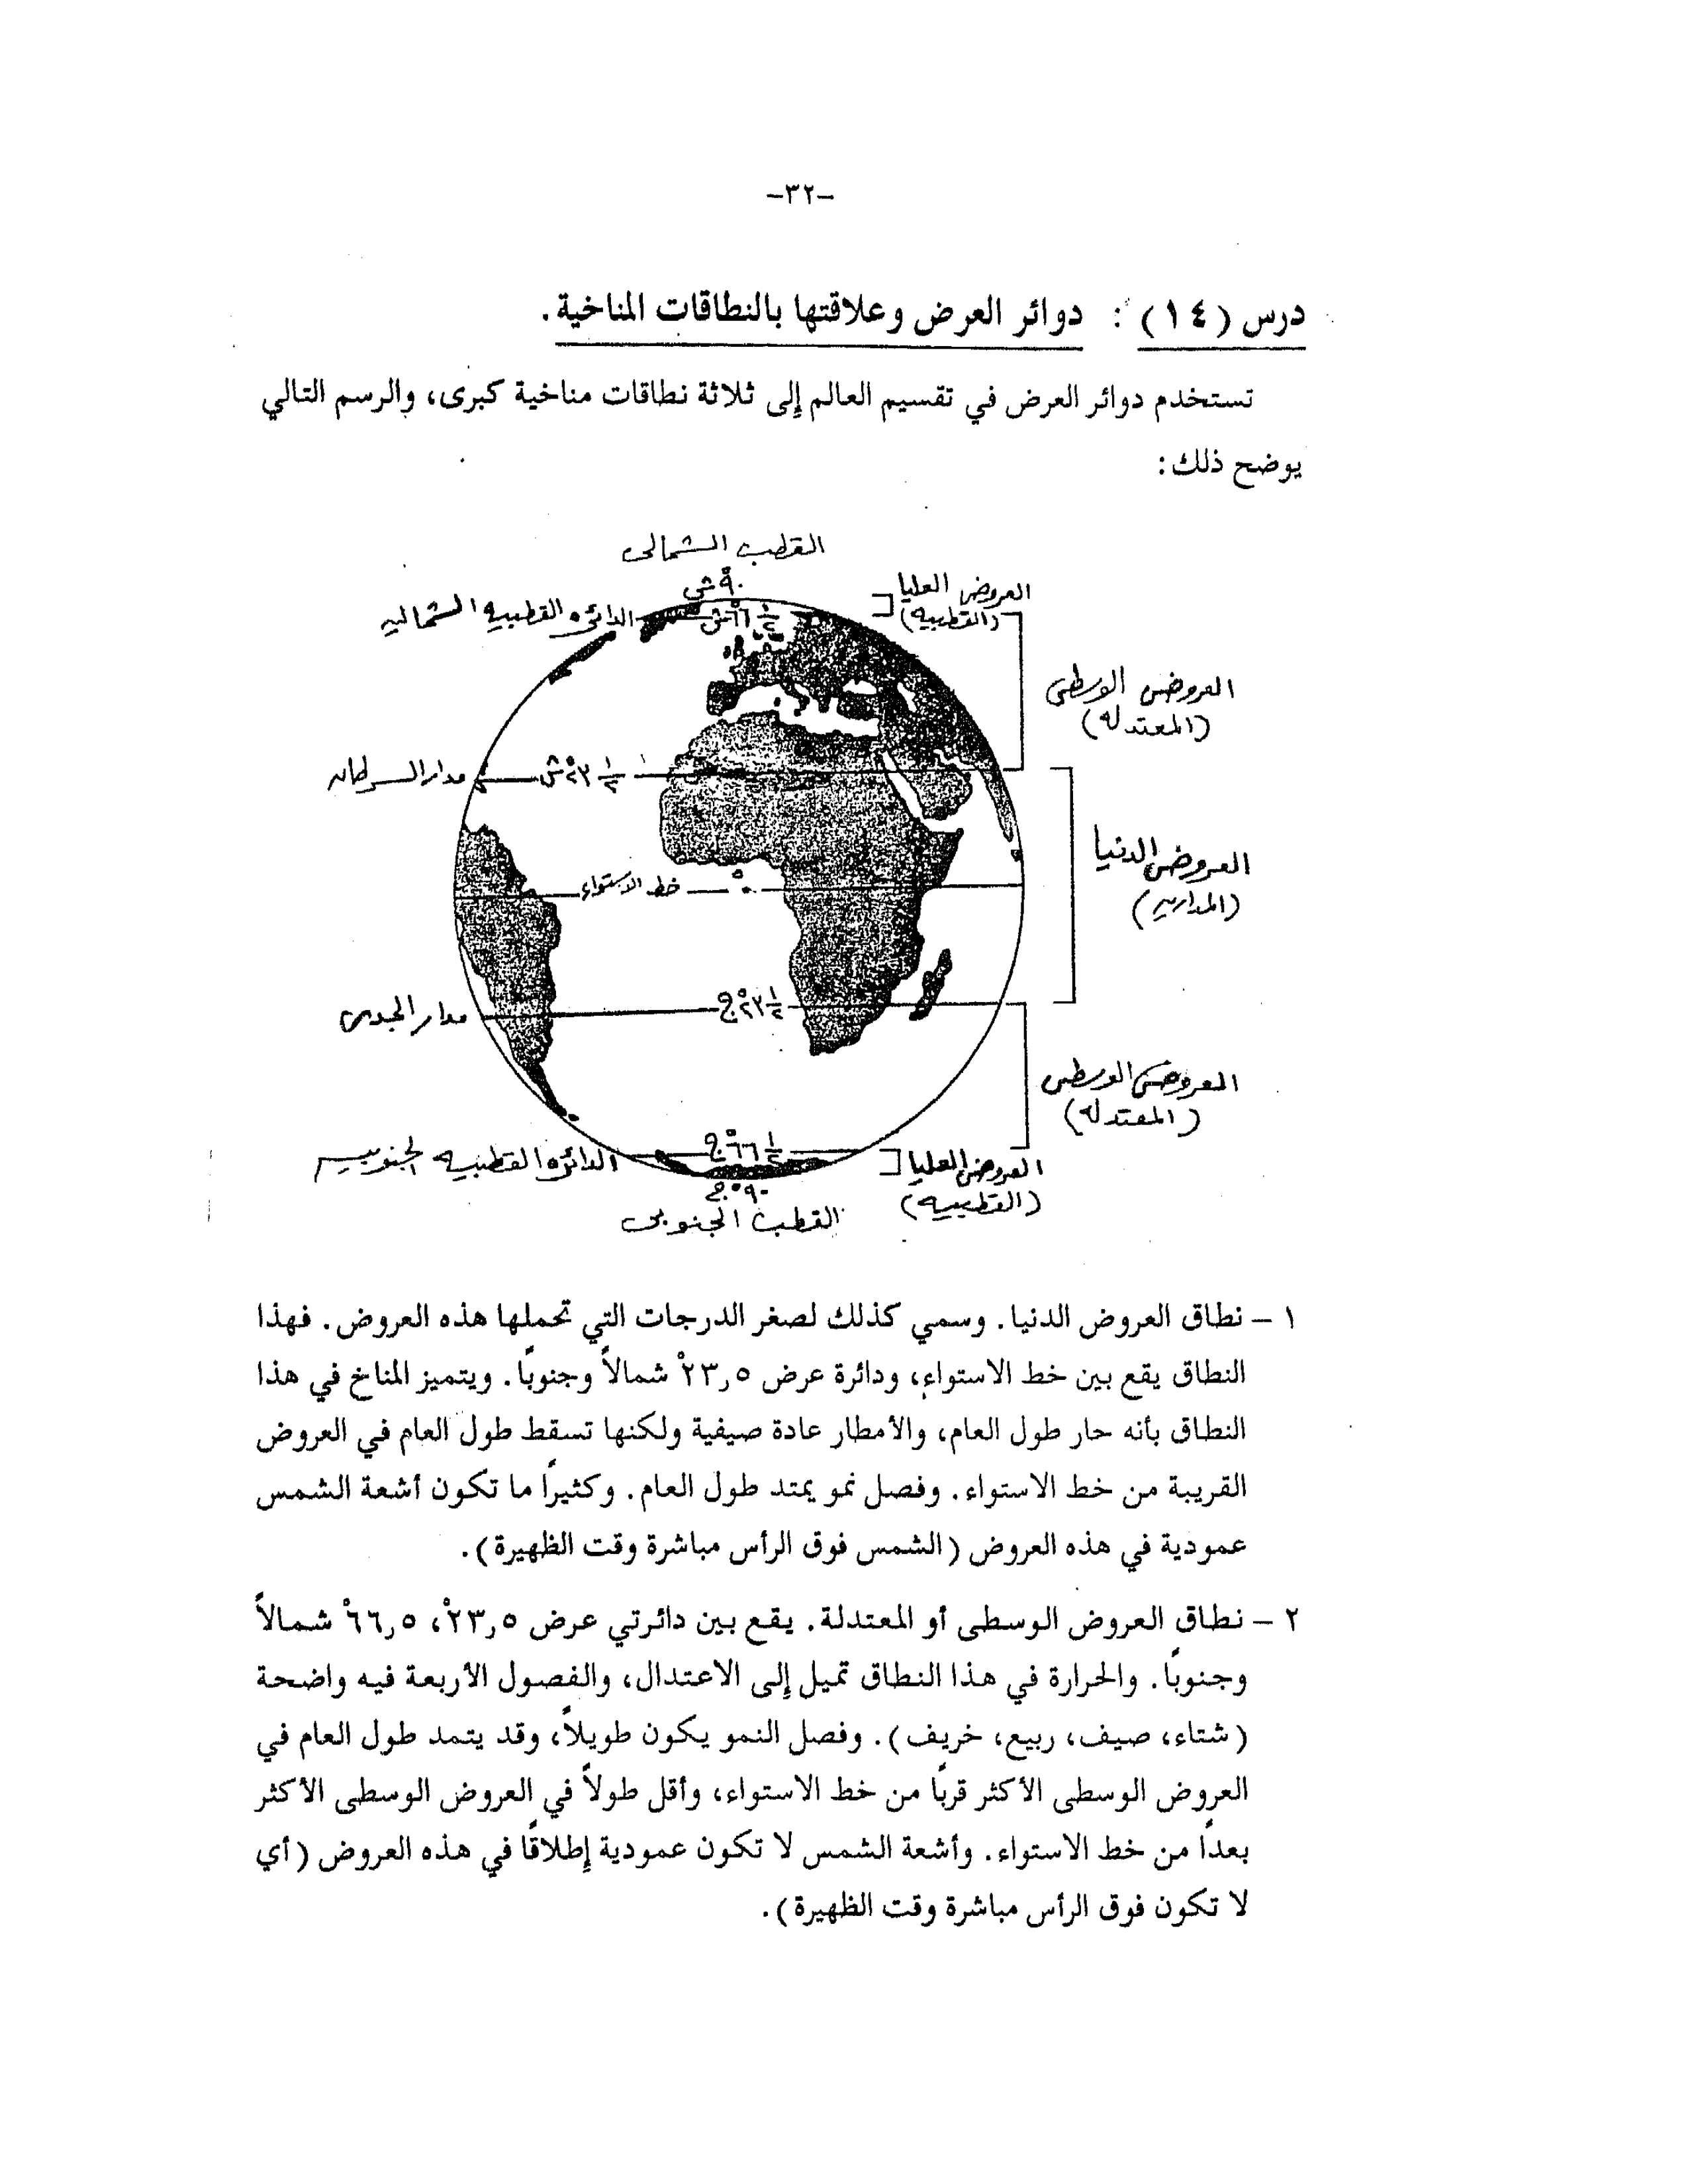 -٣٢-
درس (١٤) : دوائر العرض وعلاقتها بالنطاقات المناخية.
تستخدم دوائر العرض في تقسيم العالم إلى ثلاثة نطاقات مناخية كبرى، والرسم التالي
يوضح ذلك:
القطب الشمالى
٩٠° ش
العروض العليا
(القطبيه)
الدائره القطبيه الشماليه
٦٦° ١/٢ ش
العروض الوسطى
(المعتدله)
مدار السرطان
٢٣° ١/٢ ش
العروض الدنيا
(المداريه)
خط الاستواء
٠°
مدار الجدى
٢٣° ١/٢ ج
العروض الوسطى
(المعتدله)
الدائره القطبيه الجنوبيه
٦٦° ١/٢ ج
العروض العليا
(القطبيه)
٩٠° ج
القطب الجنوبى
١ – نطاق العروض الدنيا. وسمي كذلك لصغر الدرجات التي تحملها هذه العروض. فهذا
النطاق يقع بين خط الاستواء، ودائرة عرض ٢٣٫٥° شمالاً وجنوبًا. ويتميز المناخ في هذا
النطاق بأنه حار طول العام، والأمطار عادة صيفية ولكنها تسقط طول العام في العروض
القريبة من خط الاستواء. وفصل نمو يمتد طول العام. وكثيرًا ما تكون أشعة الشمس
عمودية في هذه العروض (الشمس فوق الرأس مباشرة وقت الظهيرة).
٢ – نطاق العروض الوسطى أو المعتدلة. يقع بين دائرتي عرض ٢٣٫٥°، ٦٦٫٥° شمالاً
وجنوبًا. والحرارة في هذا النطاق تميل إلى الاعتدال، والفصول الأربعة فيه واضحة
(شتاء، صيف، ربيع، خريف). وفصل النمو يكون طويلاً، وقد يتمد طول العام في
العروض الوسطى الأكثر قربًا من خط الاستواء، وأقل طولاً في العروض الوسطى الأكثر
بعدًا من خط الاستواء. وأشعة الشمس لا تكون عمودية إطلاقًا في هذه العروض (أي
لا تكون فوق الرأس مباشرة وقت الظهيرة).